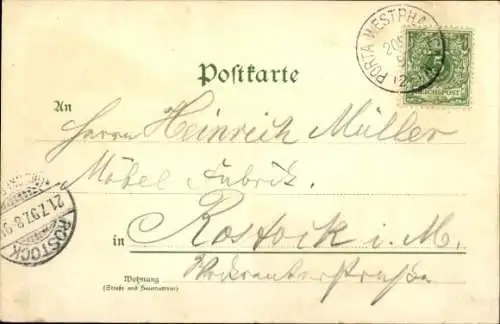 PORTA WESTPHA
REICHSPOST
Postkarte
An
Herrn Heinrich Müller
Möbel Fabrik.
in Rostock i. M.
Wohnung
(Straße und Hausnummer)
21.7.97.8-9
ROSTOCK